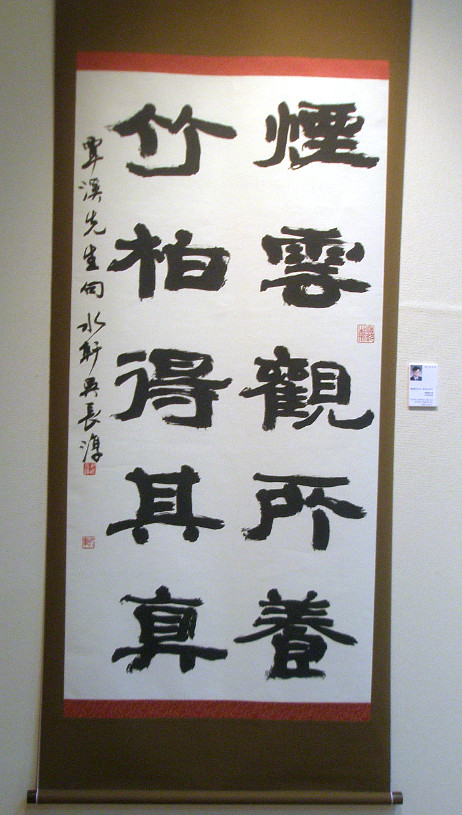 煙雲觀所養
竹柏得其真
覃溪先生句 水軒吳長淳